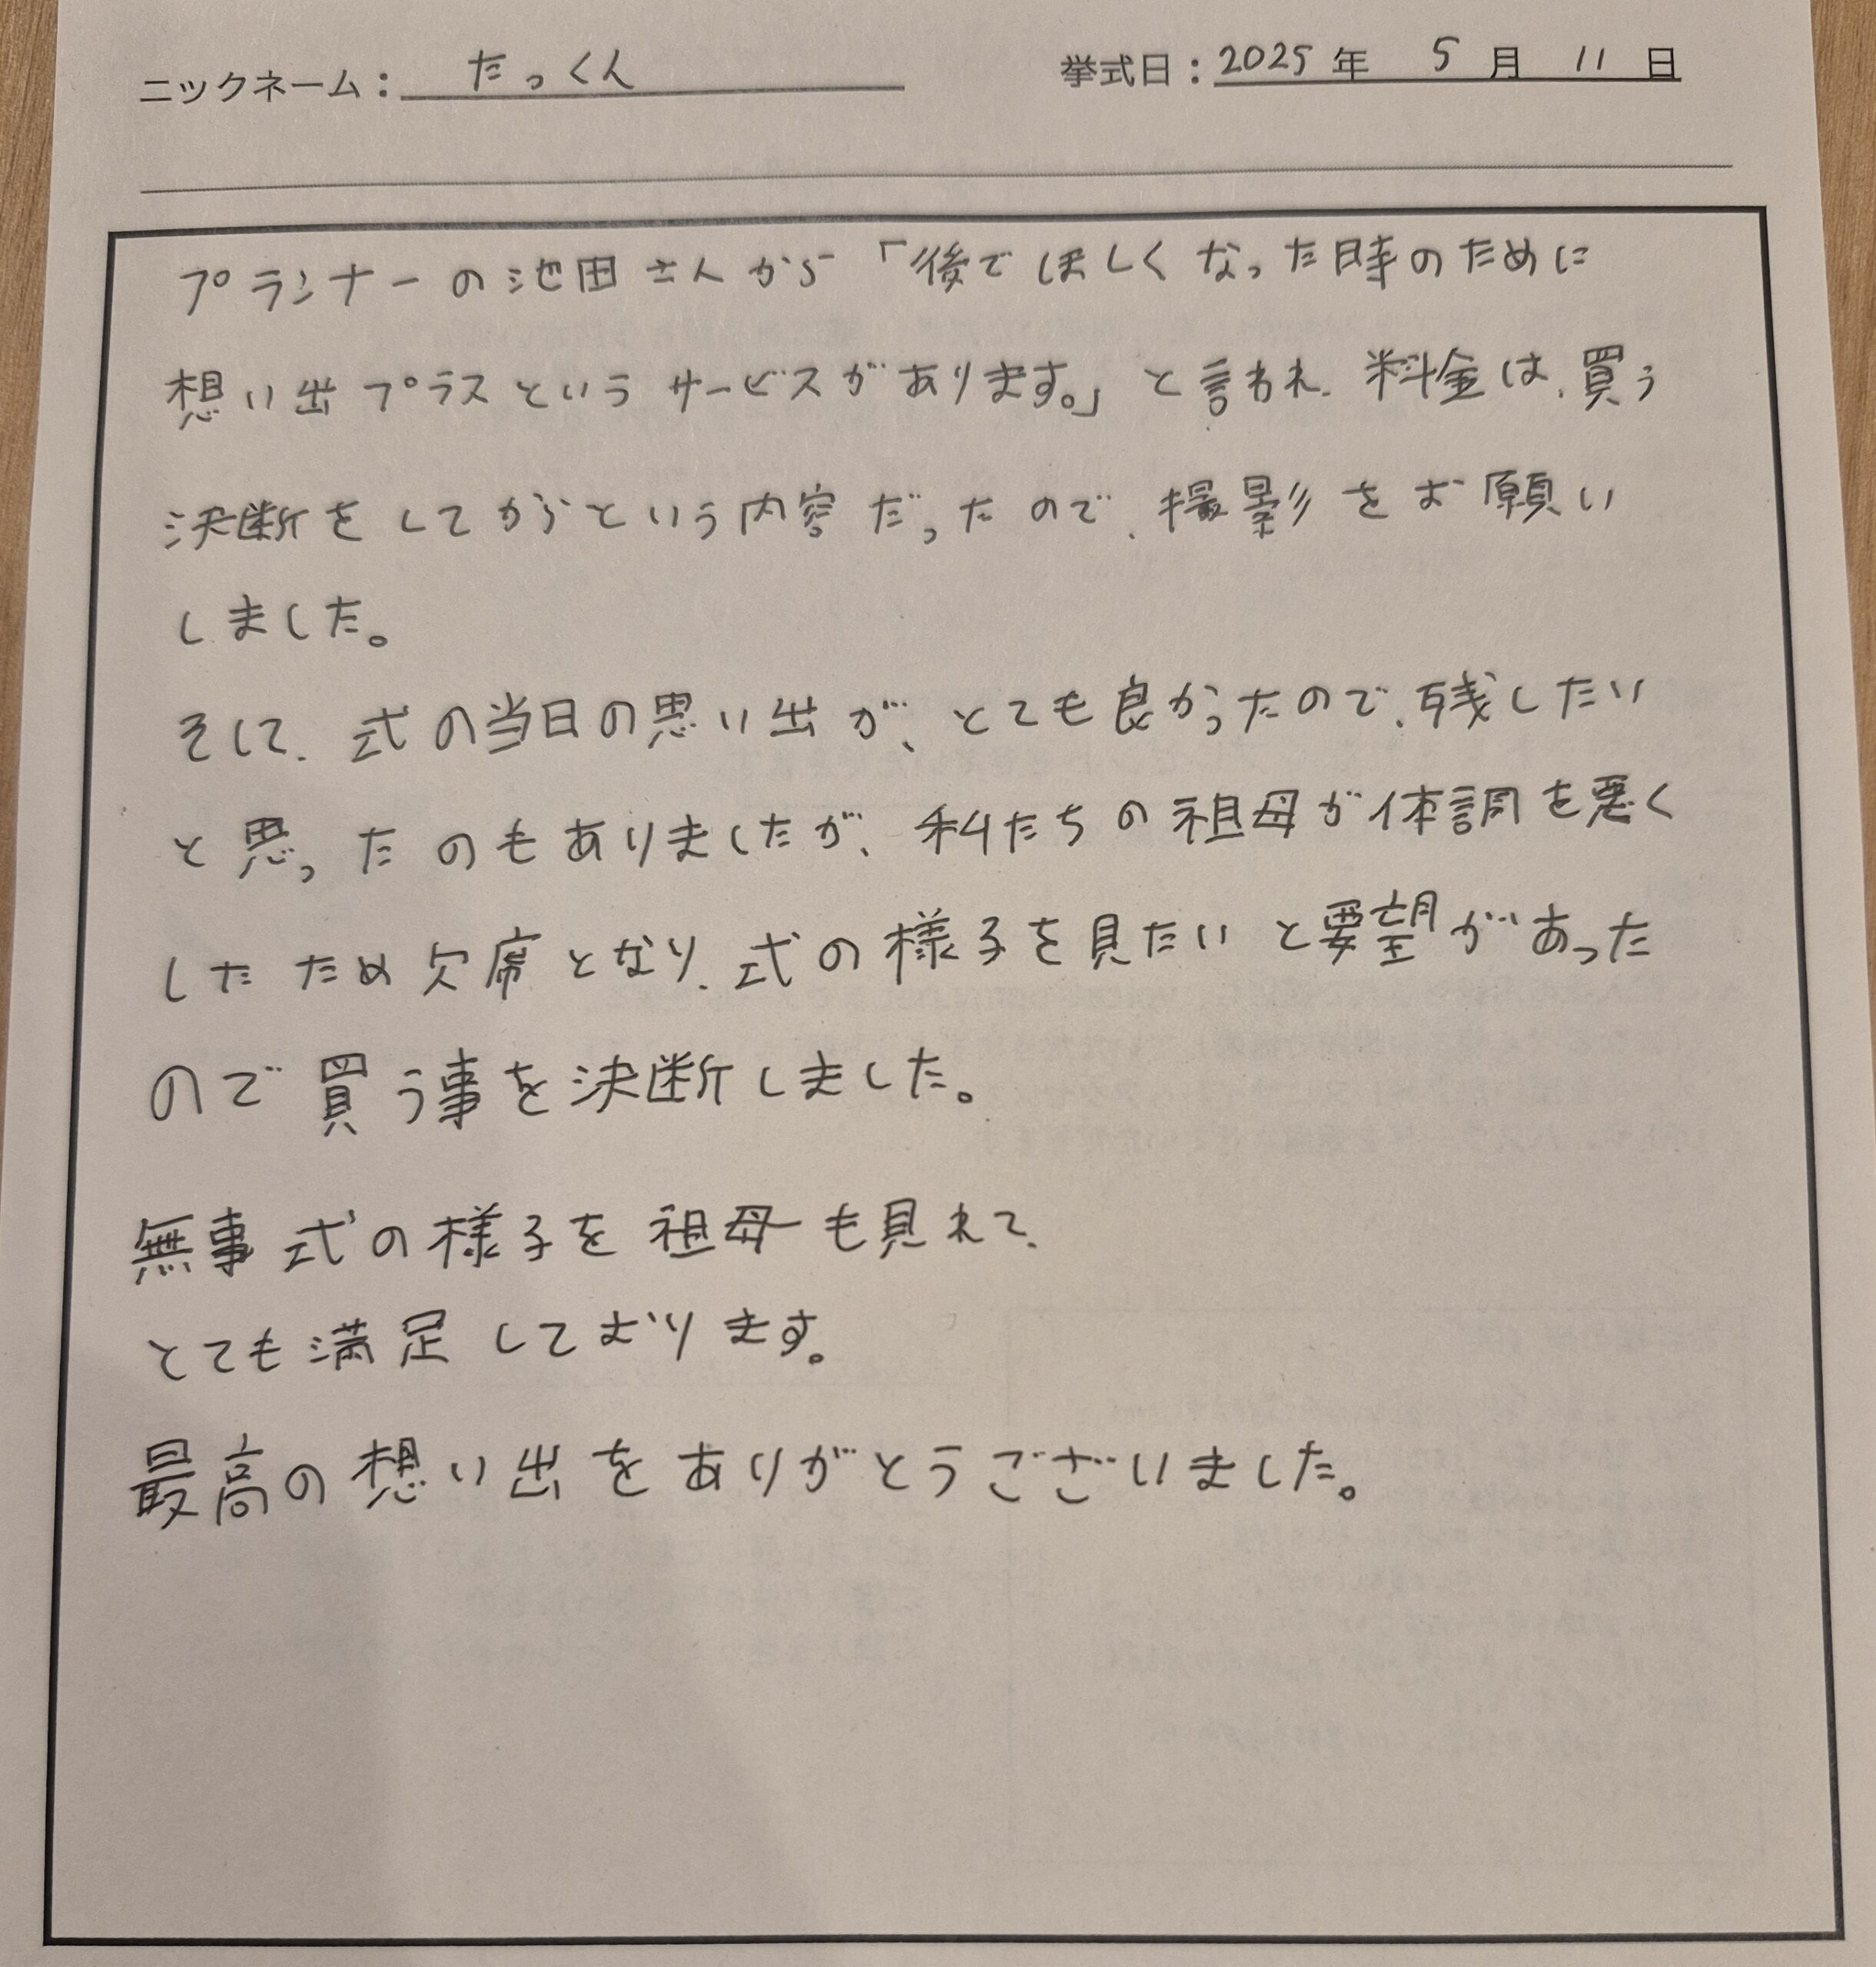 ニックネーム：たっくん 挙式日：2025年 5月 11日
プランナーの池田さんから「後でほしくなった時のために
想い出プラスというサービスがあります。」と言われ、料金は、買う
決断をしてからという内容だったので、撮影をお願い
しました。
そして、式の当日の思い出が、とても良かったので、残したい
と思ったのもありましたが、私たちの祖母が体調を悪く
したため欠席となり、式の様子を見たいと要望があった
ので買う事を決断しました。
無事式の様子を祖母も見れて、
とても満足しております。
最高の想い出をありがとうございました。